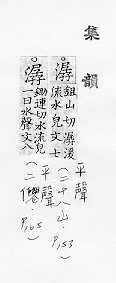 集韻
潺 鉏山切潺湲
流水皃文士
平聲
(二十八山·P.153)
潺 鋤連切水流皃
一曰水聲文八
平聲
(二僊·P.165)